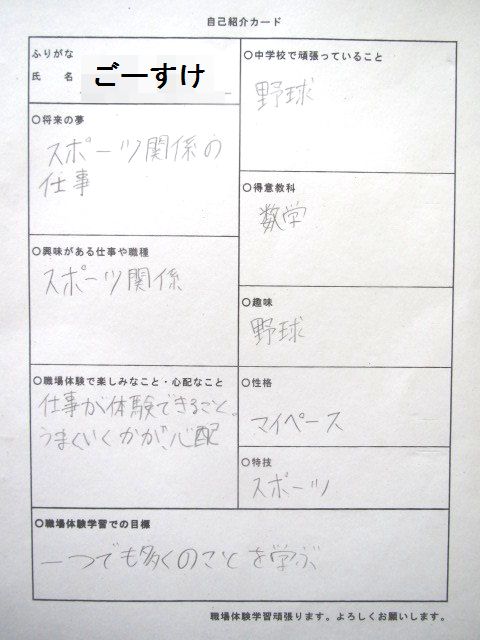 自己紹介カード
ふりがな
氏 名 ごーすけ
○将来の夢
スポーツ関係の
仕事
○興味がある仕事や職種
スポーツ関係
○職場体験で楽しみなこと・心配なこと
仕事が体験できること。
うまくいくかが、心配
○中学校で頑張っていること
野球
○得意教科
数学
○趣味
野球
○性格
マイペース
○特技
スポーツ
○職場体験学習での目標
一つでも多くのことを学ぶ
職場体験学習頑張ります。よろしくお願いします。